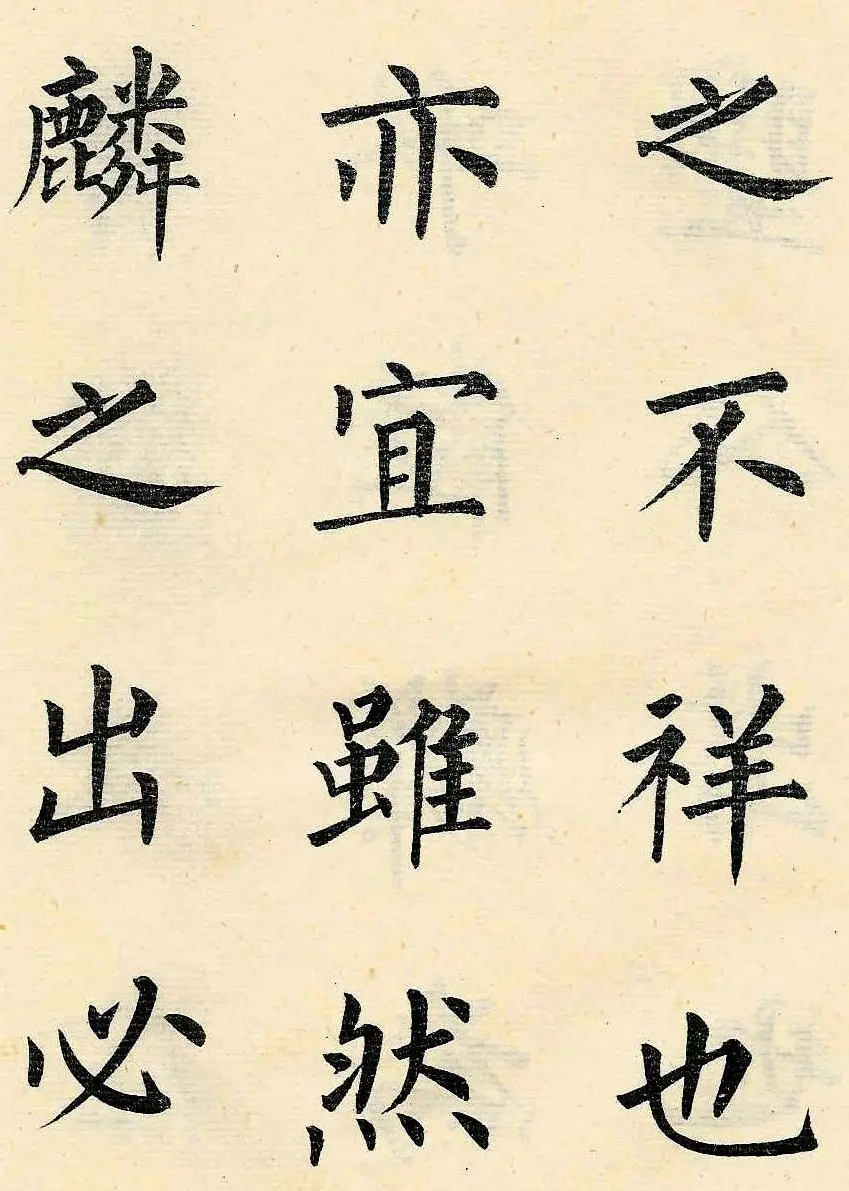 之不祥也
亦宜雖然
麟之出必